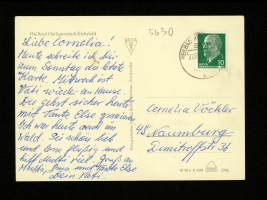 Heilbad Heiligenstadt/Eichsfeld
5630
Liebe Cornelia!
Heute schreibe ich Dir
zum Sonntag die letzte
Karte. Mittwoch ist
Vati wieder zu Hause
Du gehst sicher heute
mit Tante Else
Ich war heute auch im
Wald. Sei schön lieb
und fleißig und
hilf Mutti viel. Gruß an
Mutti, Oma und Tante Else
Dein Vati
10
Cornelia Vöckler
48 Naumburg
Dimitroffstr.